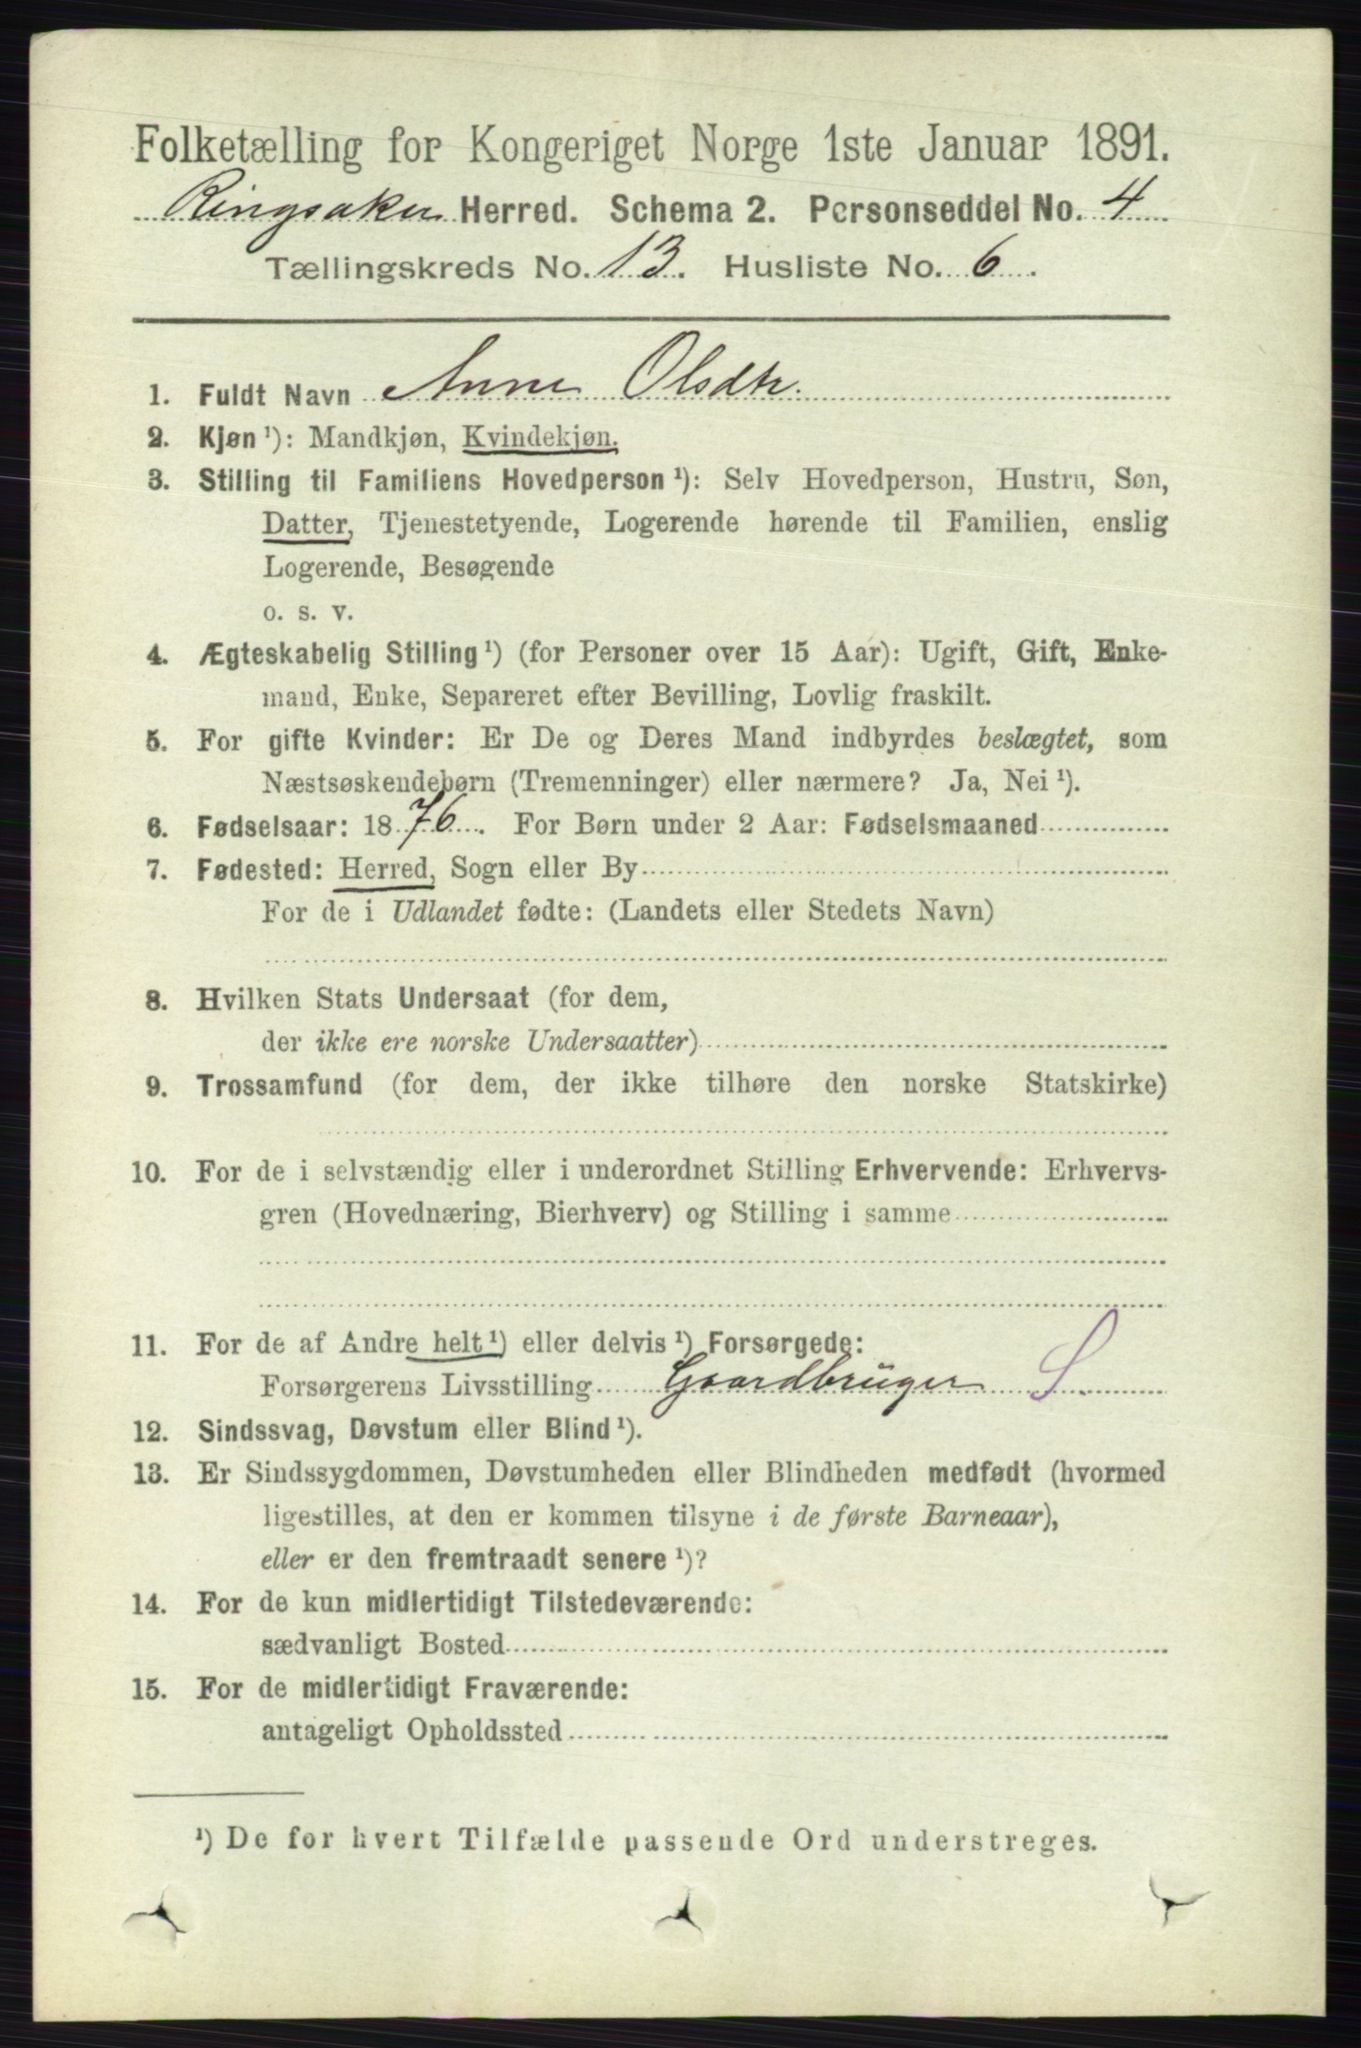 Folketælling for Kongeriget Norge 1ste Januar 1891.
Ringsaker Herred. Schema 2. Personseddel No. 4
Tællingskreds No. 13. Husliste No. 6.
1. Fuldt Navn Anne Olsdtr.
2. Kjøn ¹): Mandkjøn, Kvindekjøn.
3. Stilling til Familiens Hovedperson ¹): Selv Hovedperson, Hustru, Søn,
Datter, Tjenestetyende, Logerende hørende til Familien, enslig
Logerende, Besøgende
o. s. v.
4. Ægteskabelig Stilling ¹) (for Personer over 15 Aar): Ugift, Gift, Enke-
mand, Enke, Separeret efter Bevilling, Lovlig fraskilt.
5. For gifte Kvinder: Er De og Deres Mand indbyrdes beslægtet, som
Næstsøskendebørn (Tremenninger) eller nærmere? Ja, Nei ¹).
6. Fødselsaar: 1876. For Børn under 2 Aar: Fødselsmaaned
7. Fødested: Herred, Sogn eller By
For de i Udlandet fødte: (Landets eller Stedets Navn)
8. Hvilken Stats Undersaat (for dem,
der ikke ere norske Undersaatter)
9. Trossamfund (for dem, der ikke tilhøre den norske Statskirke)
10. For de i selvstændig eller i underordnet Stilling Erhvervende: Erhvervs-
gren (Hovednæring, Bierhverv) og Stilling i samme
11. For de af Andre helt ¹) eller delvis ¹) Forsørgede:
Forsørgerens Livsstilling Gaardbrüger S.
12. Sindssvag, Døvstum eller Blind ¹).
13. Er Sindssygdommen, Døvstumheden eller Blindheden medfødt (hvormed
ligestilles, at den er kommen tilsyne i de første Barneaar),
eller er den fremtraadt senere ¹)?
14. For de kun midlertidigt Tilstedeværende:
sædvanligt Bosted
15. For de midlertidigt Fraværende:
antageligt Opholdssted
¹) De for hvert Tilfælde passende Ord understreges.